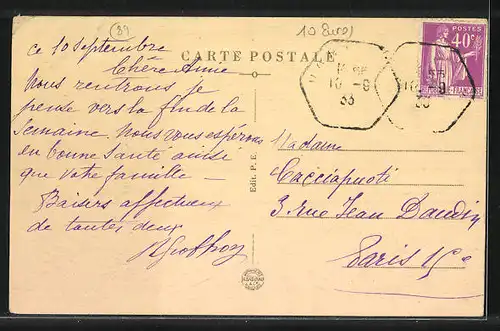 89
10 Euro
CARTE POSTALE
POSTES
40c
16 - 9
33
ce 10 septembre
Chère Anne
Nous rentrons je
pense vers la fin de la
semaine. Nous vous espérons
en bonne santé ainsi
que votre famille —
Baisers affectueux
de toutes deux
Edit. P. E.
Madame
Cacciapuoti
3 rue Jean Daudin
Paris 15e